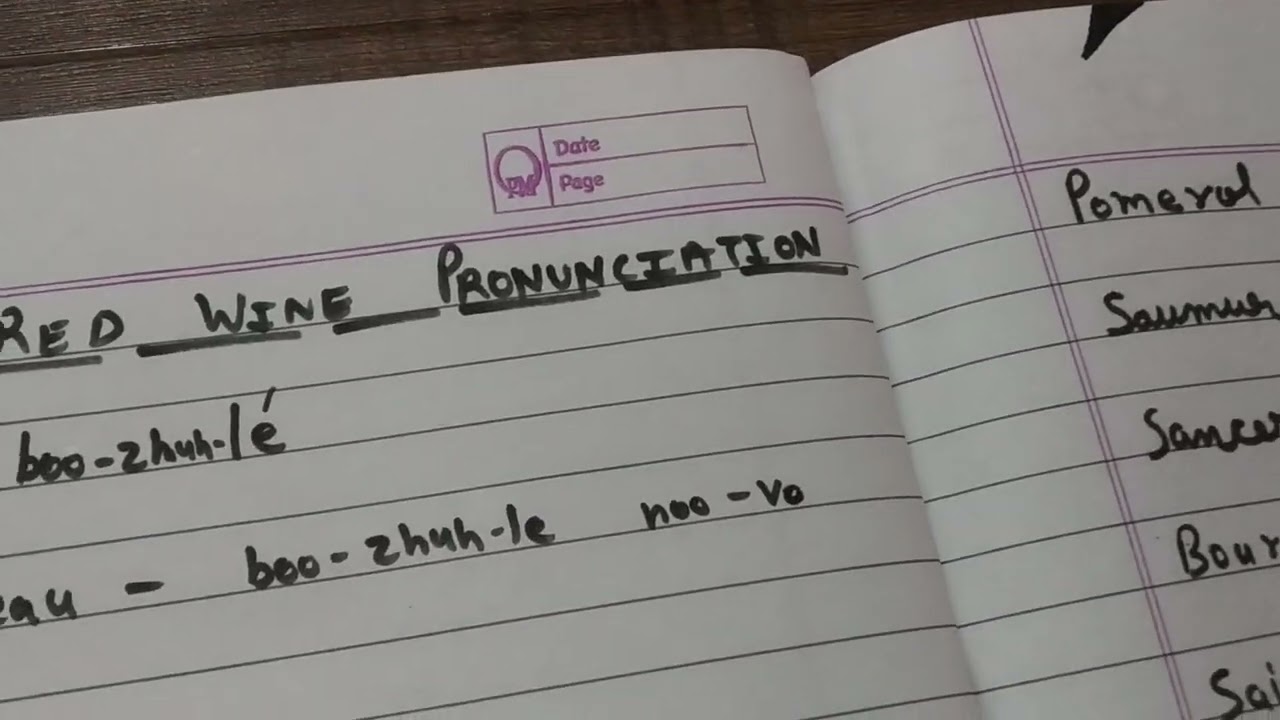 PM
Date
Page
RED WINE PRONUNCIATION
boo-zhuh-lé
eau - boo-zhuh-le noo-vo
Pomerol
Saumur
Sancer
Bour
Sai